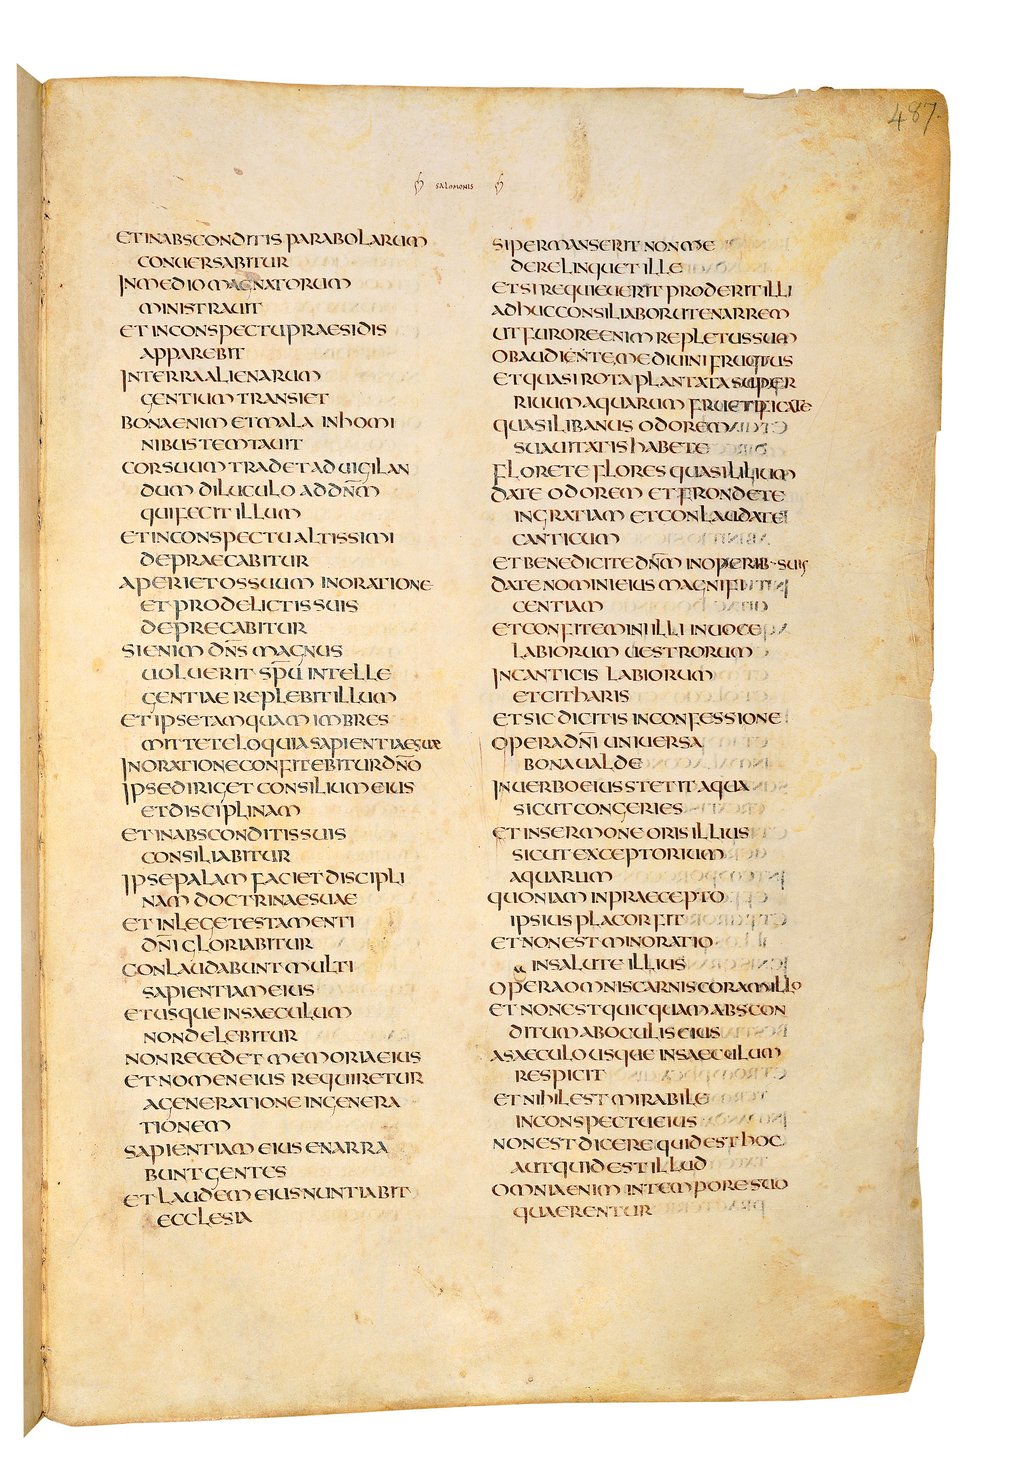 487.
SALOMONIS
ET IN ABSCONDITIS PARABOLARUM
CONUERSABITUR
IN MEDIO MAGNATORUM
MINISTRAUIT
ET IN CONSPECTU PRAESIDIS
APPAREBIT
IN TERRA ALIENARUM
GENTIUM TRANSIET
BONA ENIM ET MALA IN HOMI
NIBUS TEMTAUIT
COR SUUM TRADET AD UIGILAN
DUM DILUCULO AD DN̄M
QUI FECIT ILLUM
ET IN CONSPECTU ALTISSIMI
DEPRAECABITUR
APERIET OS SUUM IN ORATIONE
ET PRO DELICTIS SUIS
DEPRECABITUR
SI ENIM DN̄S MAGNUS
UOLUERIT SPŪ INTELLE
GENTIAE REPLEBIT ILLUM
ET IPSE TAMQUAM IMBRES
MITTET ELOQUIA SAPIENTIAE SUAE
IN ORATIONE CONFITEBITUR DN̄O
IPSE DIRIGET CONSILIUM EIUS
ET DISCIPLINAM
ET IN ABSCONDITIS SUIS
CONSILIABITUR
IPSE PALAM FACIET DISCIPLI
NAM DOCTRINAE SUAE
ET IN LEGE TESTAMENTI
DN̄I GLORIABITUR
CONLAUDABUNT MULTI
SAPIENTIAM EIUS
ET USQUE IN SAECULUM
NON DELEBITUR
NON RECEDET MEMORIA EIUS
ET NOMEN EIUS REQUIRETUR
A GENERATIONE IN GENERA
TIONEM
SAPIENTIAM EIUS ENARRA
BUNT GENTES
ET LAUDEM EIUS NUNTIABIT
ECCLESIA
SI PERMANSERIT NOMME
DERELINQUET ILLE
ET SI REQUIEUERIT PRODERIT ILLI
ADHUC CONSILIABOR UT ENARREM
UT FURORE ENIM REPLETUS SUM
OBAUDIENTE ME DIUINI FRUCTUS
ET QUASI ROTA PLANTATA SUPER
RIUUM AQUARUM FRUCTIFICATE
QUASI LIBANUS ODOREM
SUAUITATIS HABETE
FLORETE FLORES QUASI LILIUM
DATE ODOREM ET FRONDETE
IN GRATIAM ET CONLAUDATE
CANTICUM
ET BENEDICITE DN̄M IN OPERIB· SUIS
DATE NOMINI EIUS MAGNIFI
CENTIAM
ET CONFITEMINI ILLI IN UOCE
LABIORUM UESTRORUM
IN CANTICIS LABIORUM
ET CITHARIS
ET SIC DICITIS IN CONFESSIONE
OPERA DN̄I UNIUERSA
BONA UALDE
IN UERBO EIUS STETIT AQUA
SICUT CONGERIES
ET IN SERMONE ORIS ILLIUS
SICUT EXCEPTORIUM
AQUARUM
QUONIAM IN PRAECEPTO
IPSIUS PLACOR FIT
ET NON EST MINORATIO
IN SALUTE ILLIUS
OPERA OMNIS CARNIS CORAM ILLO
ET NON EST QUICQUAM ABSCON
DITUM AB OCULIS EIUS
A SAECULO USQUE IN SAECULUM
RESPICIT
ET NIHIL EST MIRABILE
IN CONSPECTU EIUS
NON EST DICERE QUID EST HOC
AUT QUID EST ILLUD
OMNIA ENIM IN TEMPORE SUO
QUAERENTUR